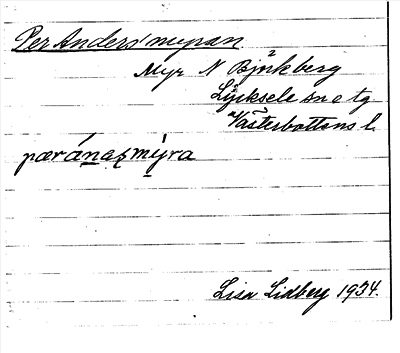 Per Anders'myran
Myr N Björkberg
Lycksele sn o tg
Västerbottens l.
pæránaʂmỳra
Lisa Lidberg 1934.